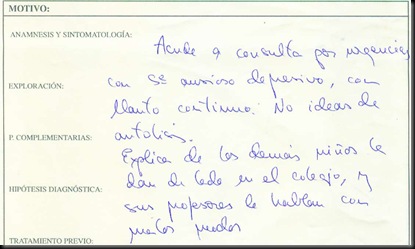 MOTIVO:
ANAMNESIS Y SINTOMATOLOGÍA:
Acude a consulta por urgencias
EXPLORACIÓN:
con se ansioso depresivo, con
llanto continuo. No ideas de
P. COMPLEMENTARIAS:
autolisis.
Explica de los demás niños le
HIPÓTESIS DIAGNÓSTICA:
dan de lado en el colegio, y
sus profesores le hablan con
malos modos
TRATAMIENTO PREVIO: